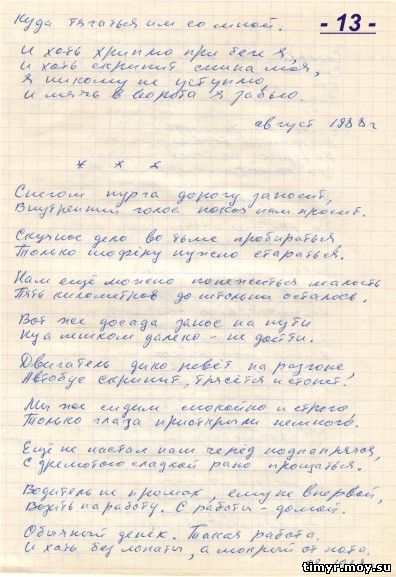 - 13 -
Куда тягаться им со мной.
И хоть хриплю при беге я,
И хоть скрипит спина моя,
Я никому не уступлю
И мячь в ворота я забью.
август 1988 г
* * *
Снегом пурга дорогу заносит,
Внутренний голос покоя нам просит.
Скучное дело во тьме пробираться
Только шофёру нужно стараться.
Нам ещё можно понежиться малость
Пять километров до штольни осталось.
Вот же досада занос на пути
Ну а пешком далеко - не дойти.
Двигатель дико ревёт на разгоне,
Автобус скрипит, трясётся и стонет.
Мы же сидим спокойно и строго,
Только глаза приоткрыли немного.
Ещё не настал наш черёд поднапрячся,
С дремотою сладкой рано прощаться.
Водитель не промах, ему не впервой,
Возить на работу. С работы - домой.
Обычный денёк. Такая работа.
И хоть без лопаты, а мокрый от пота.
timyr.moy.su